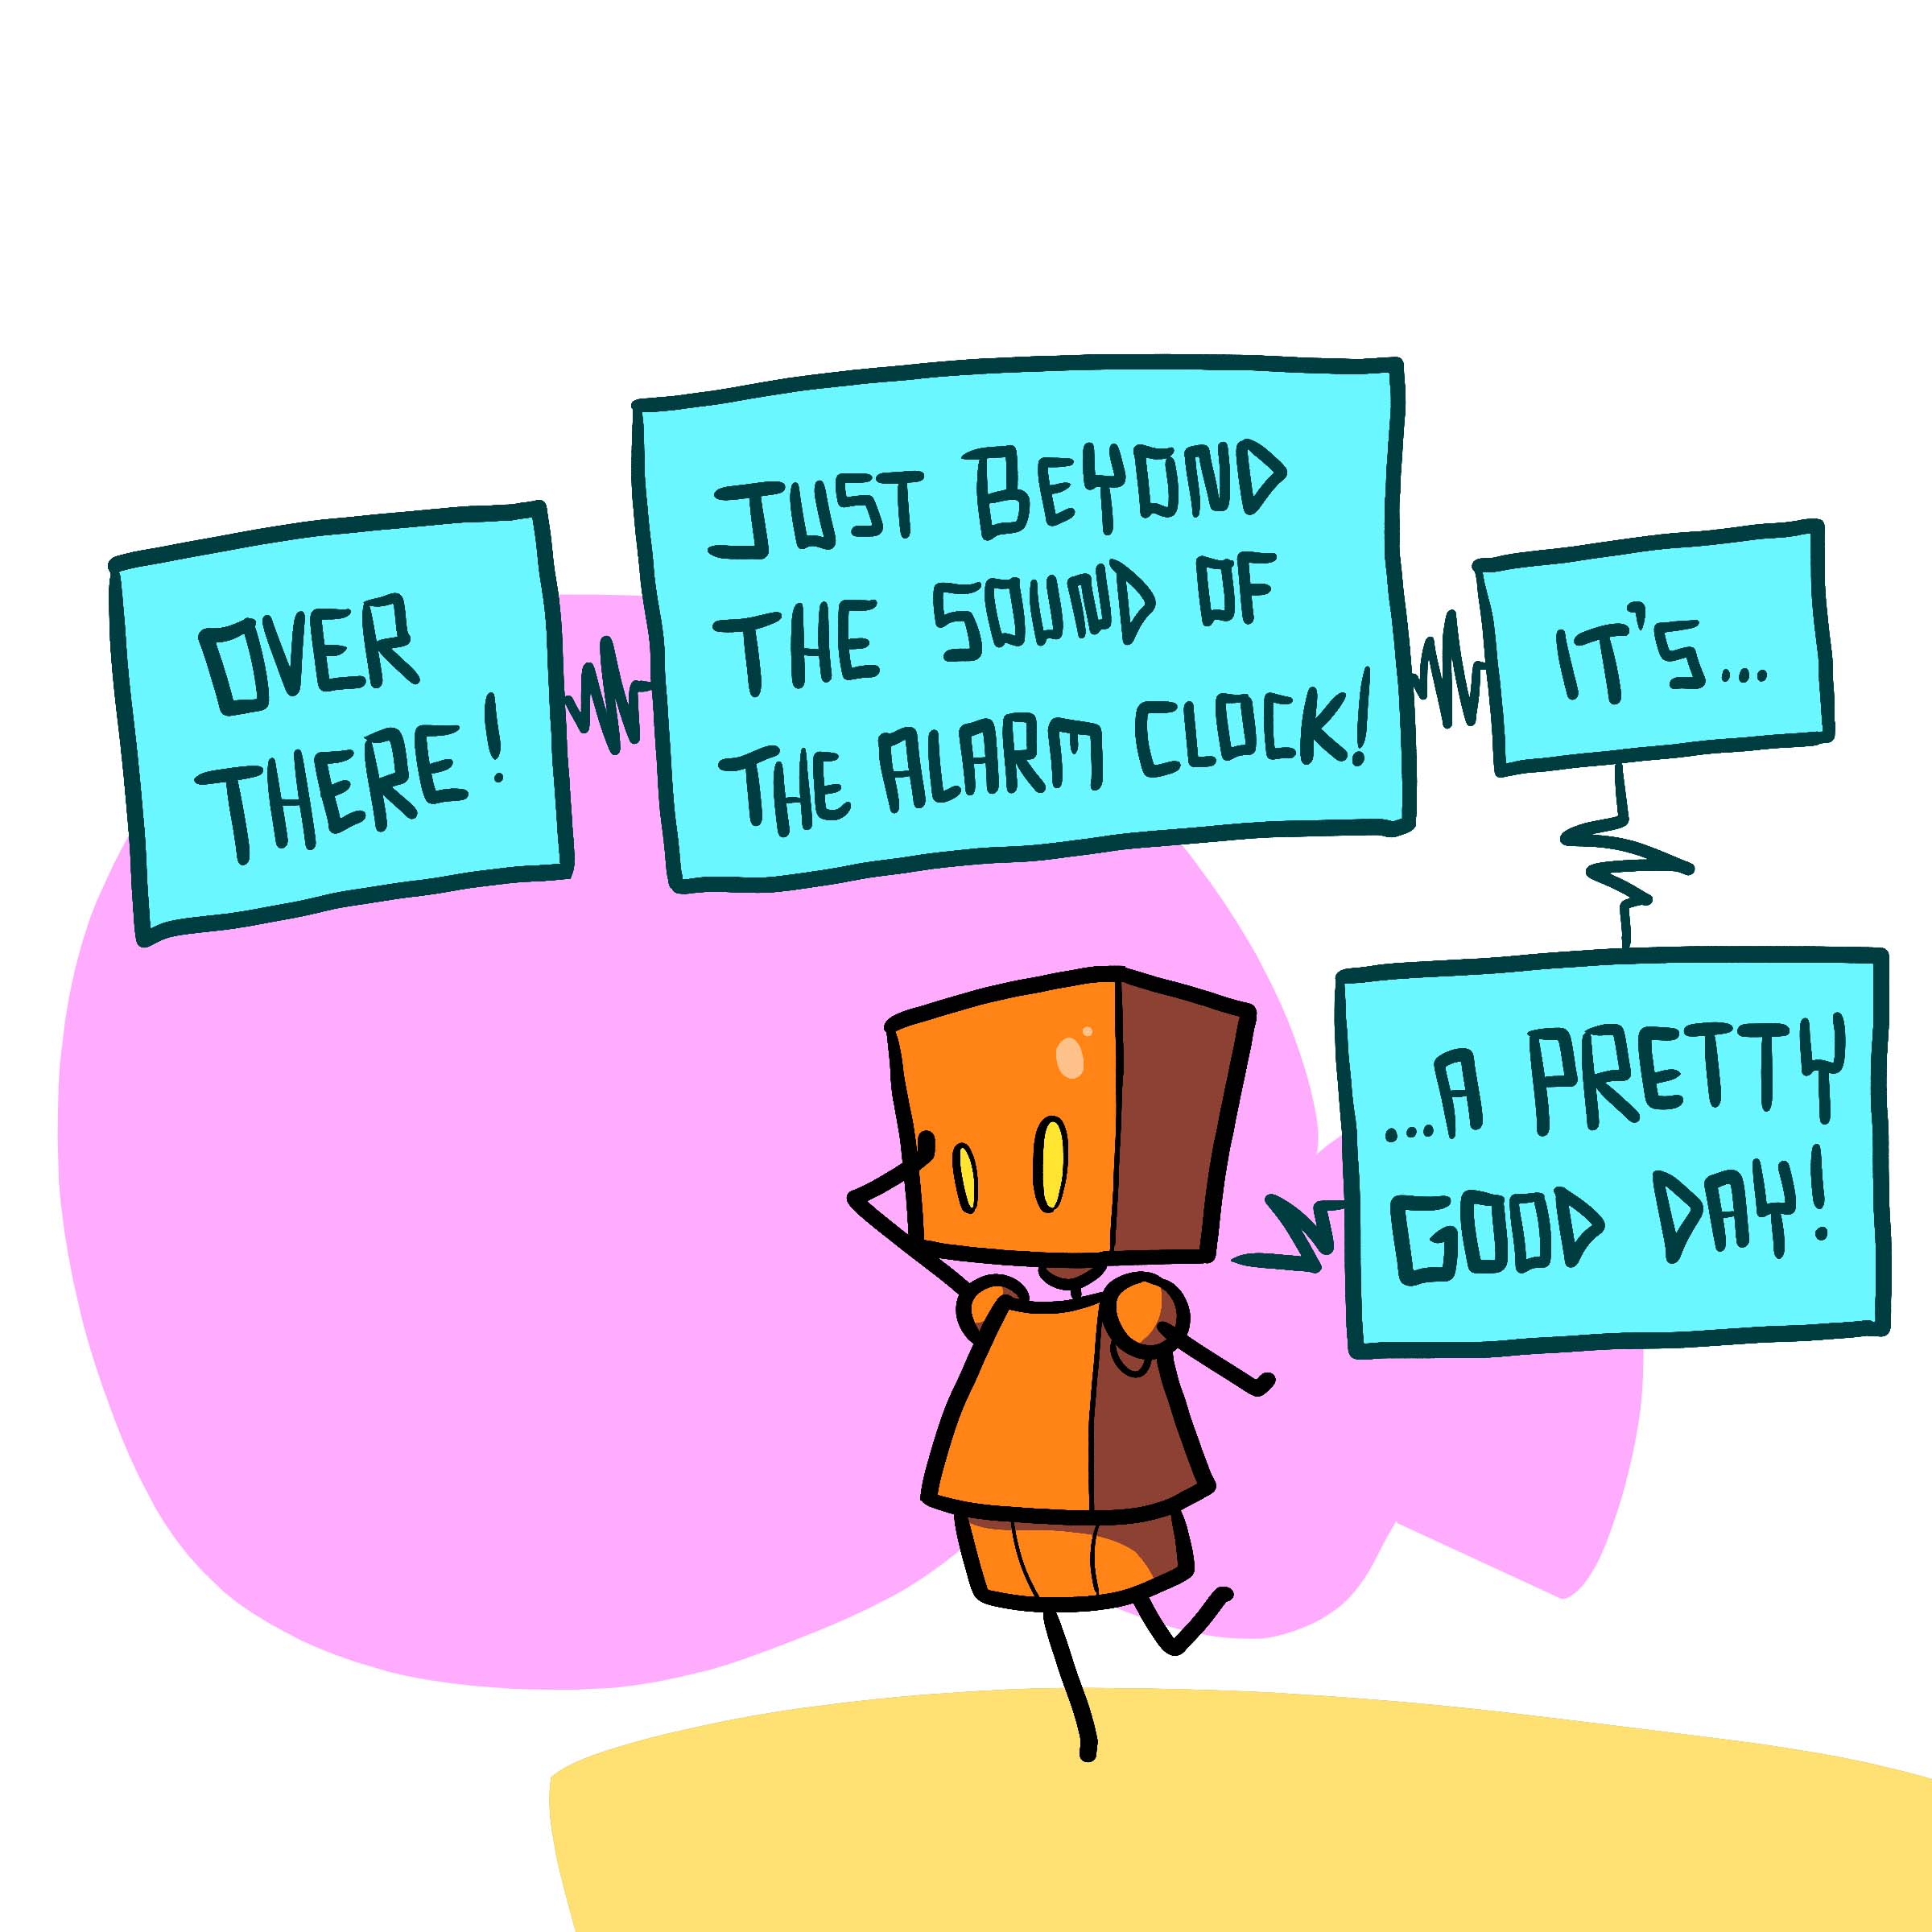 OVER
THERE!
JUST BEYOND
THE SOUND OF
THE ALARM CLOCK!
IT'S...
...A PRETTY
GOOD DAY!